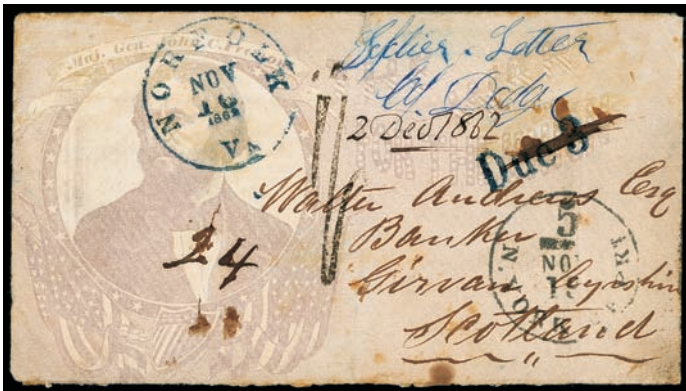 Maj. Gen. John C. Fremont
NORFOLK
NOV
1862
VA
Soldier's Letter
Col Dodge
2 Dec 1862
Due 3
1/
Walter Andrews Esq
Banker
Girvan Ayrshire
Scotland
24
N. YORK
5
NOV